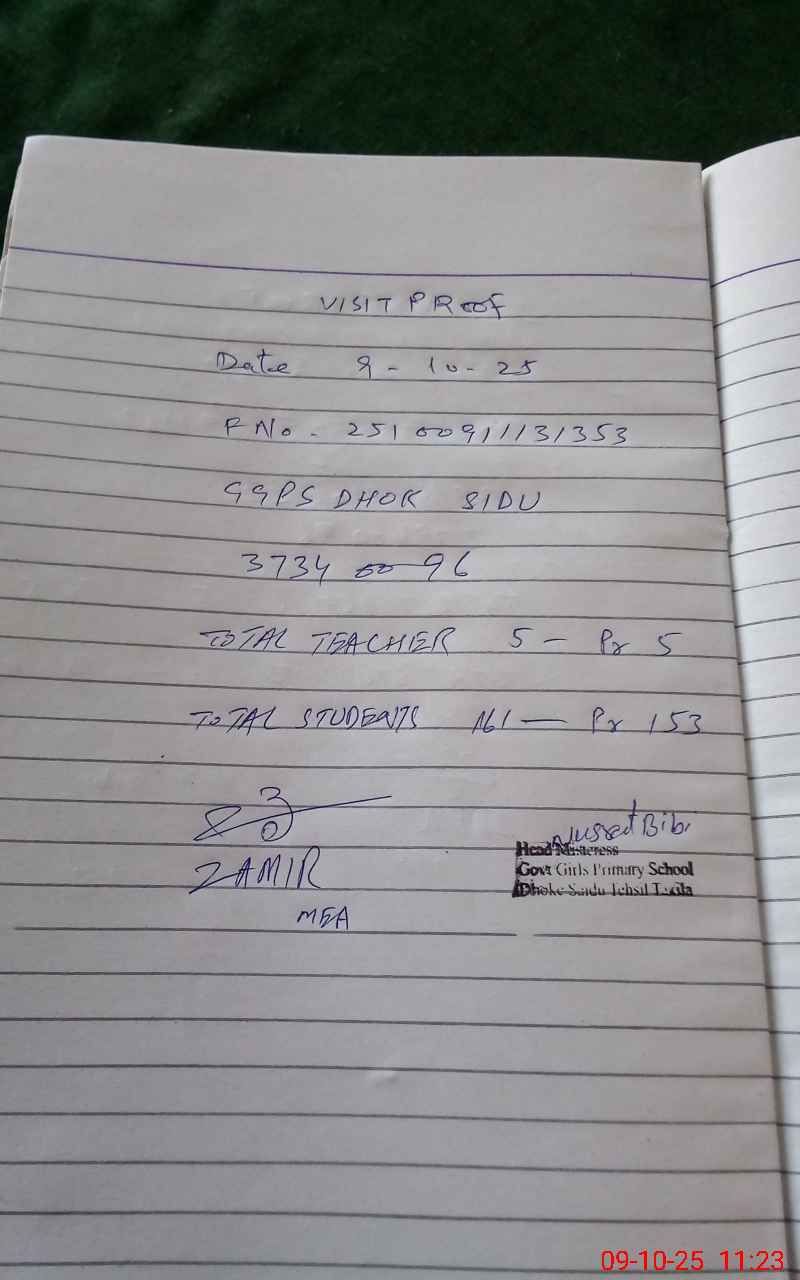 VISIT PROOF
Date 9-10-25
F No. 25100911131353
GGPS DHOK SIDU
37340096
TOTAL TEACHER 5 - Pr 5
TOTAL STUDENTS 161 - Pr 153
ZAMIR
MEA
Nusrat Bibi
Head Misteress
Govt Girls Primary School
Dhoke Saidu Tehsil Taxila
09-10-25 11:23